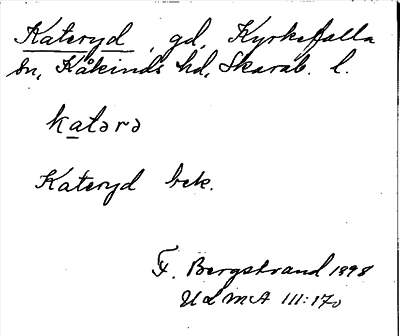 Kateryd, gd, Kyrkefalla
sn, Kåkinds hd, Skarab. l.
katərə
Kateryd bek.
F. Bergstrand 1898
ULMA 111:170